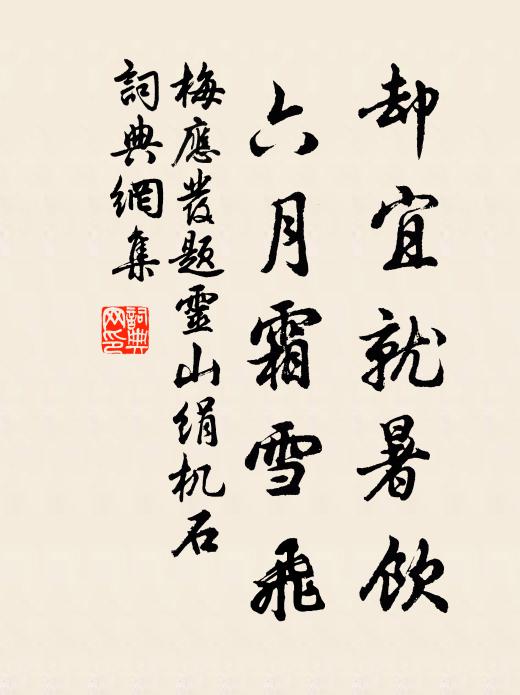 却宜就暑飲
六月霜雪飛
梅應發題靈山絹机石
詞典網集
詞典网印